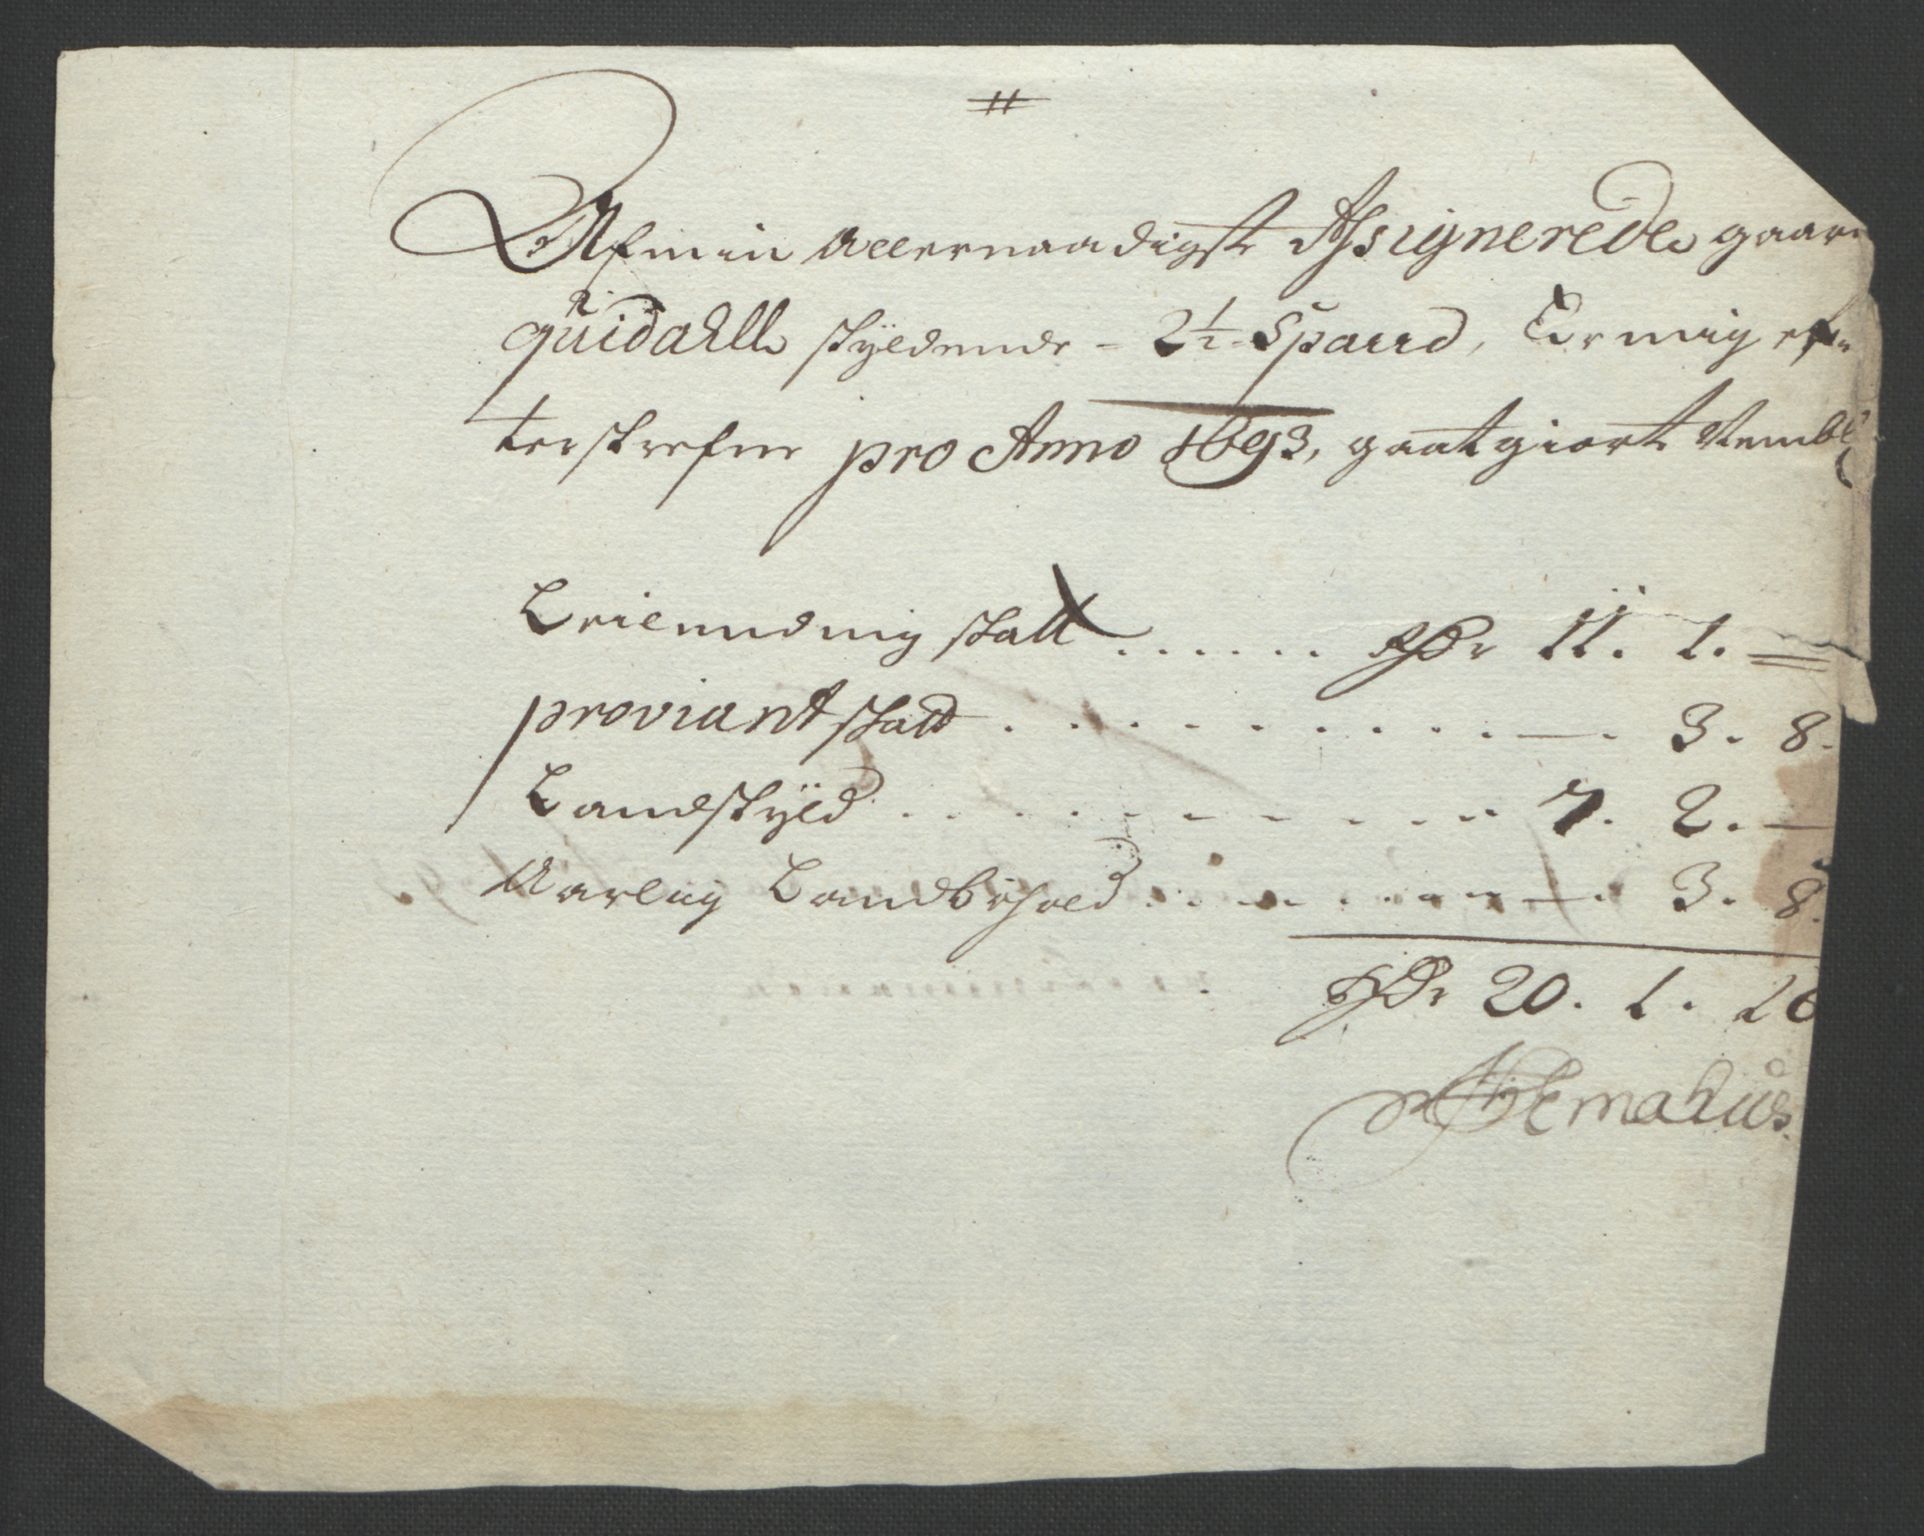 Af min allernaadigst Assignerede gaard
quidahll skyldende - 2½ Spand, Er mig ef-
terskrefne pro Anno 1693, gaat giort Nembl
Leilendnig skatt ...... Rdr 11. 1. =
proviant skatt ........... — . 3. 8.
Landskyld ........... 7. 2. —
Aarlig Landbohold ......... — . 3. 8.
Rdr 20. 1. 16